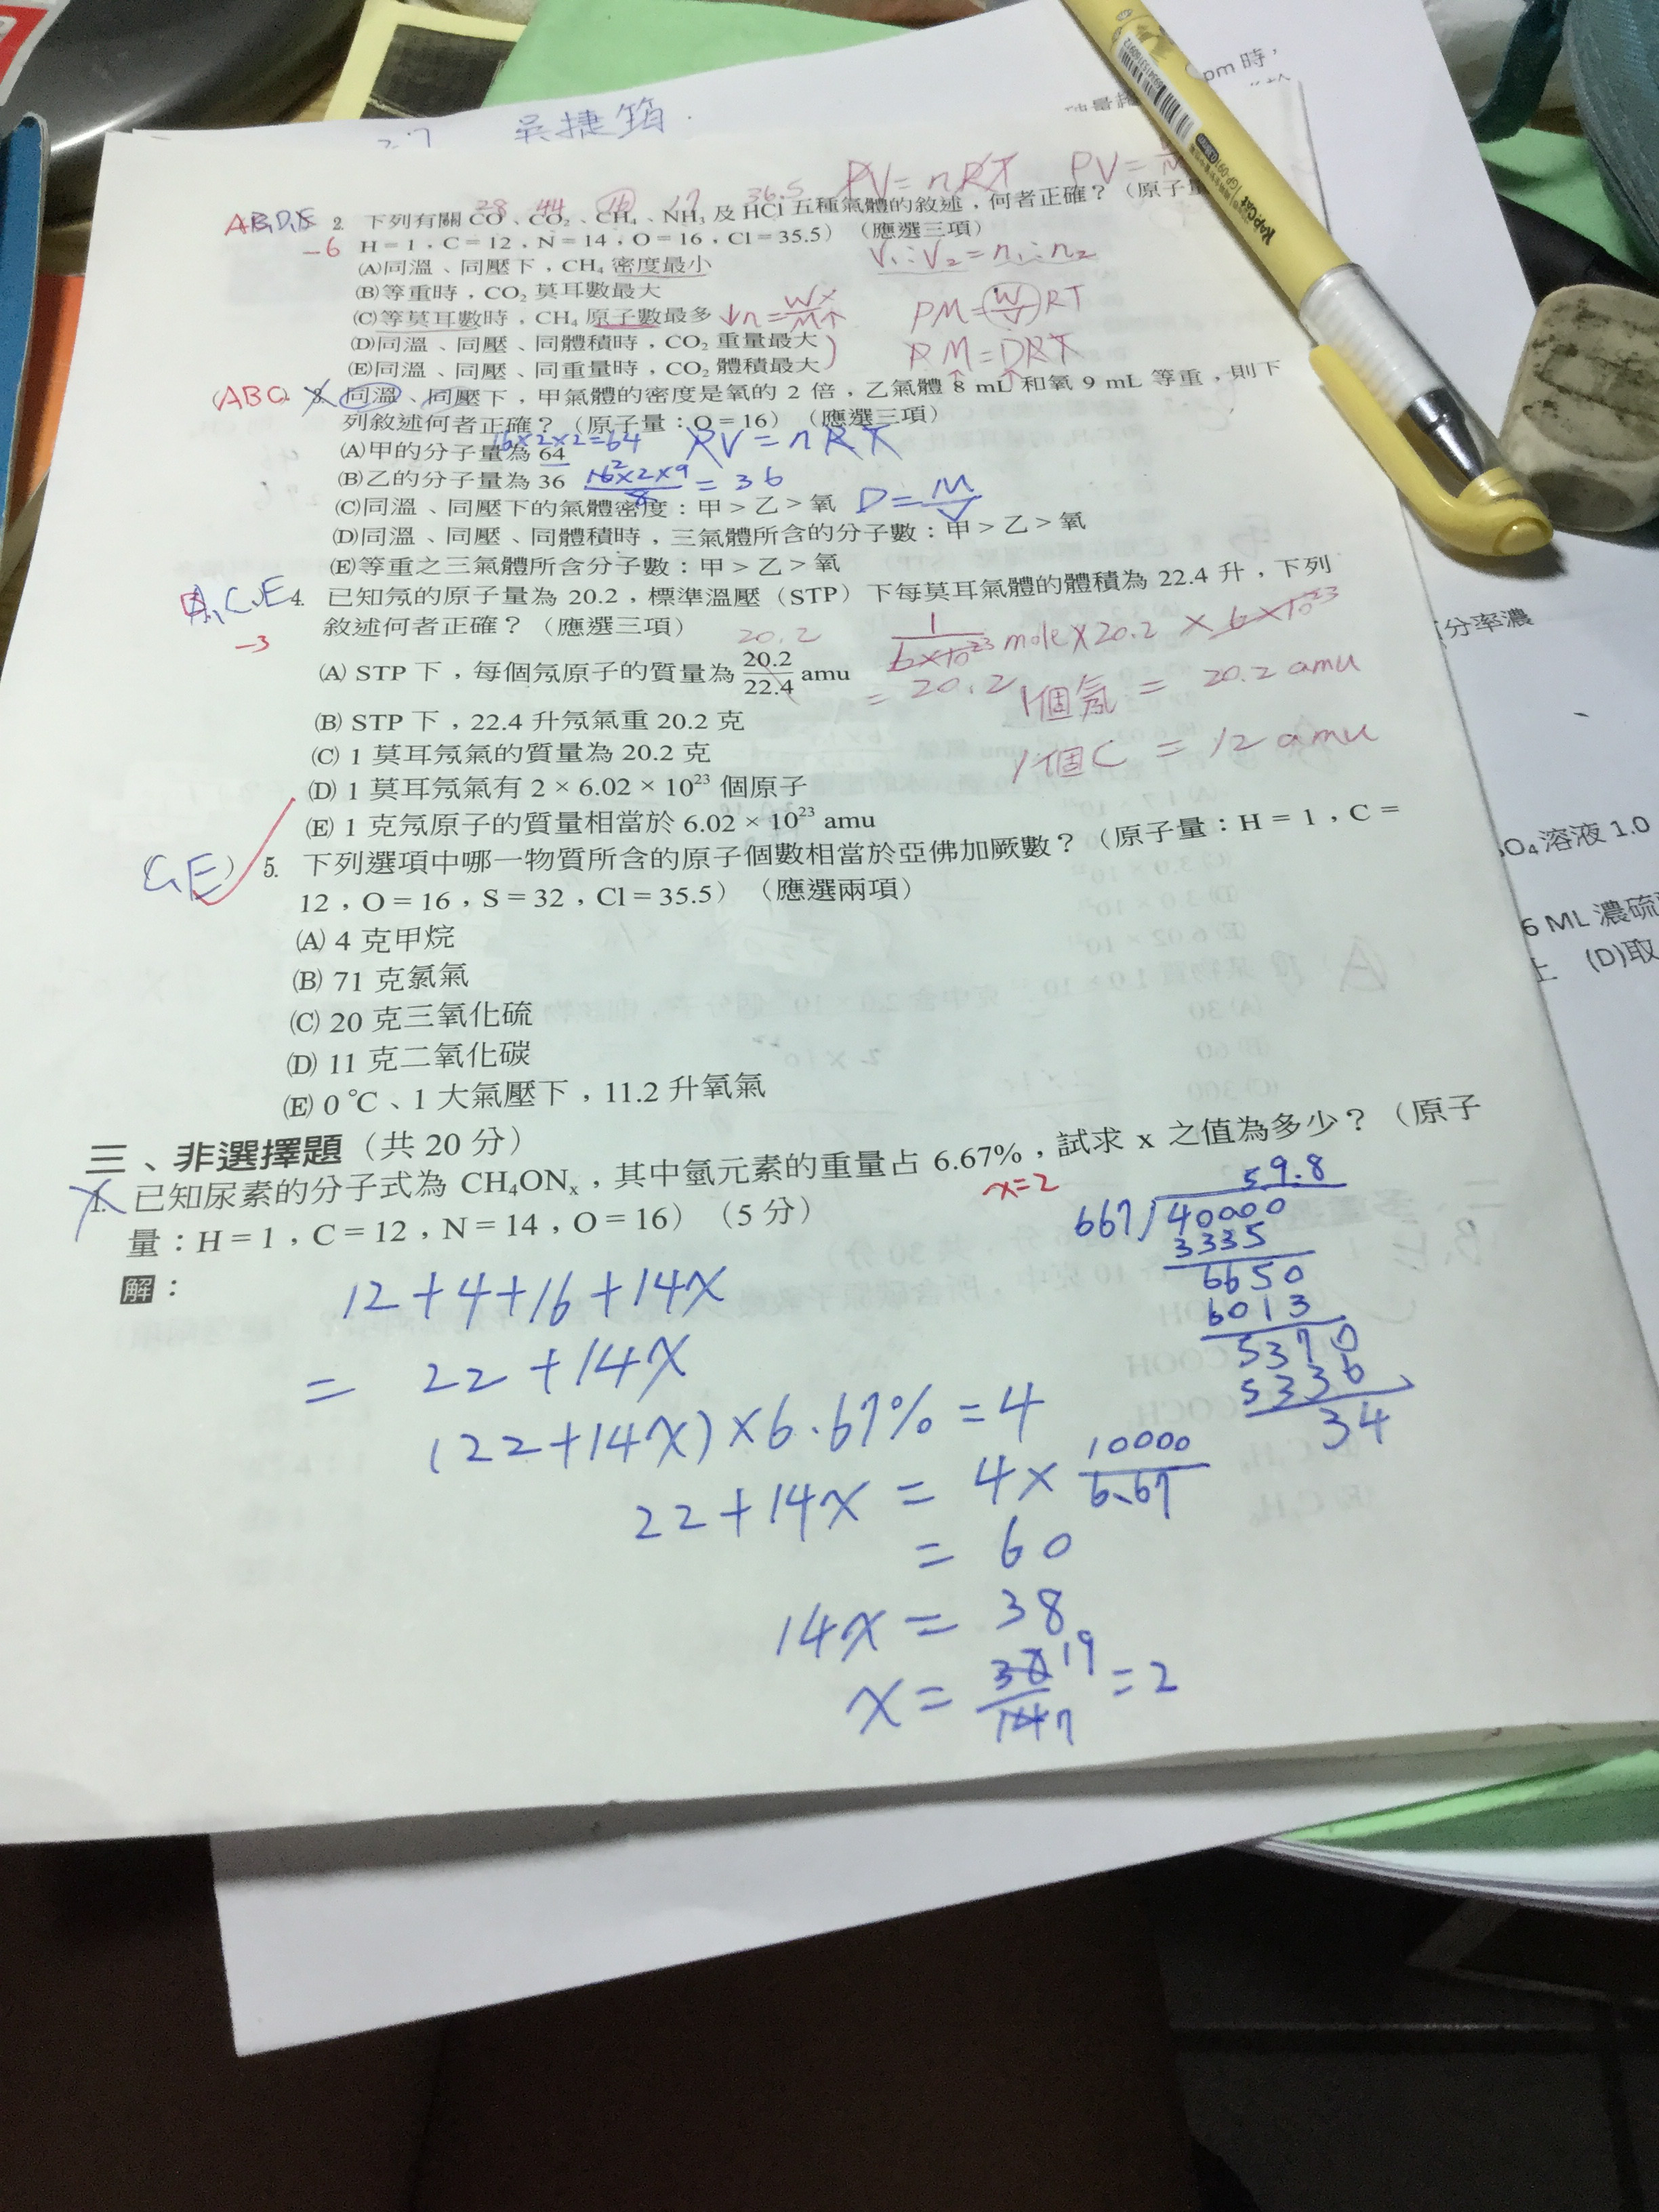 27 吳捷筠.
PV=nRT PV=
28 44 16 17 36.5
2. 下列有關 CO、CO₂、CH₄、NH₃ 及 HCl 五種氣體的敘述,何者正確?(原子量
-6 H=1,C=12,N=14,O=16,Cl=35.5)(應選三項)
V₁:V₂=n₁:n₂
(A)同溫、同壓下,CH₄ 密度最小
(B)等重時,CO₂ 莫耳數最大
(C)等莫耳數時,CH₄ 原子數最多 ↓n=W×/M↑ PM=(W/V)RT
(D)同溫、同壓、同體積時,CO₂ 重量最大
(E)同溫、同壓、同重量時,CO₂ 體積最大 PM=DRT
(ABC 同溫、同壓下,甲氣體的密度是氧的 2 倍,乙氣體 8 mL 和氧 9 mL 等重,則下
列敘述何者正確?(原子量:O=16)(應選三項)
16×2×2=64 PV=nRT
(A)甲的分子量為 64
(B)乙的分子量為 36 16×2×9/8=36
(C)同溫、同壓下的氣體密度:甲>乙>氧 D=M/V
(D)同溫、同壓、同體積時,三氣體所含的分子數:甲>乙>氧
(E)等重之三氣體所含分子數:甲>乙>氧
C、E 4. 已知氖的原子量為 20.2,標準溫壓(STP)下每莫耳氣體的體積為 22.4 升,下列
-3 敘述何者正確?(應選三項)
20.2 1/6×10²³ mole×20.2×6×10²³
(A) STP 下,每個氖原子的質量為 20.2/22.4 amu = 20.2
1個氖 = 20.2 amu
(B) STP 下,22.4 升氖氣重 20.2 克
(C) 1 莫耳氖氣的質量為 20.2 克 1個C = 12 amu
(D) 1 莫耳氖氣有 2 × 6.02 × 10²³ 個原子
(E) 1 克氖原子的質量相當於 6.02 × 10²³ amu
C,E) 5. 下列選項中哪一物質所含的原子個數相當於亞佛加厥數?(原子量:H=1,C=
12,O=16,S=32,Cl=35.5)(應選兩項)
(A) 4 克甲烷
(B) 71 克氯氣
(C) 20 克三氧化硫
(D) 11 克二氧化碳
(E) 0 ℃、1 大氣壓下,11.2 升氧氣
三、非選擇題(共 20 分)
1. 已知尿素的分子式為 CH₄ONₓ,其中氫元素的重量占 6.67%,試求 x 之值為多少?(原子
x=2
量:H=1,C=12,N=14,O=16)(5 分)
解:
12+4+16+14x
= 22+14x
(22+14x)×6.67%=4
22+14x = 4×10000/6.67
= 60
14x = 38
x = 38 19/14 7 = 2
59.8
667)40000
3335
6650
6013
5370
5336
34
pm 時,
分率濃
SO₄溶液 1.0
6 ML 濃硫
上 (D)取